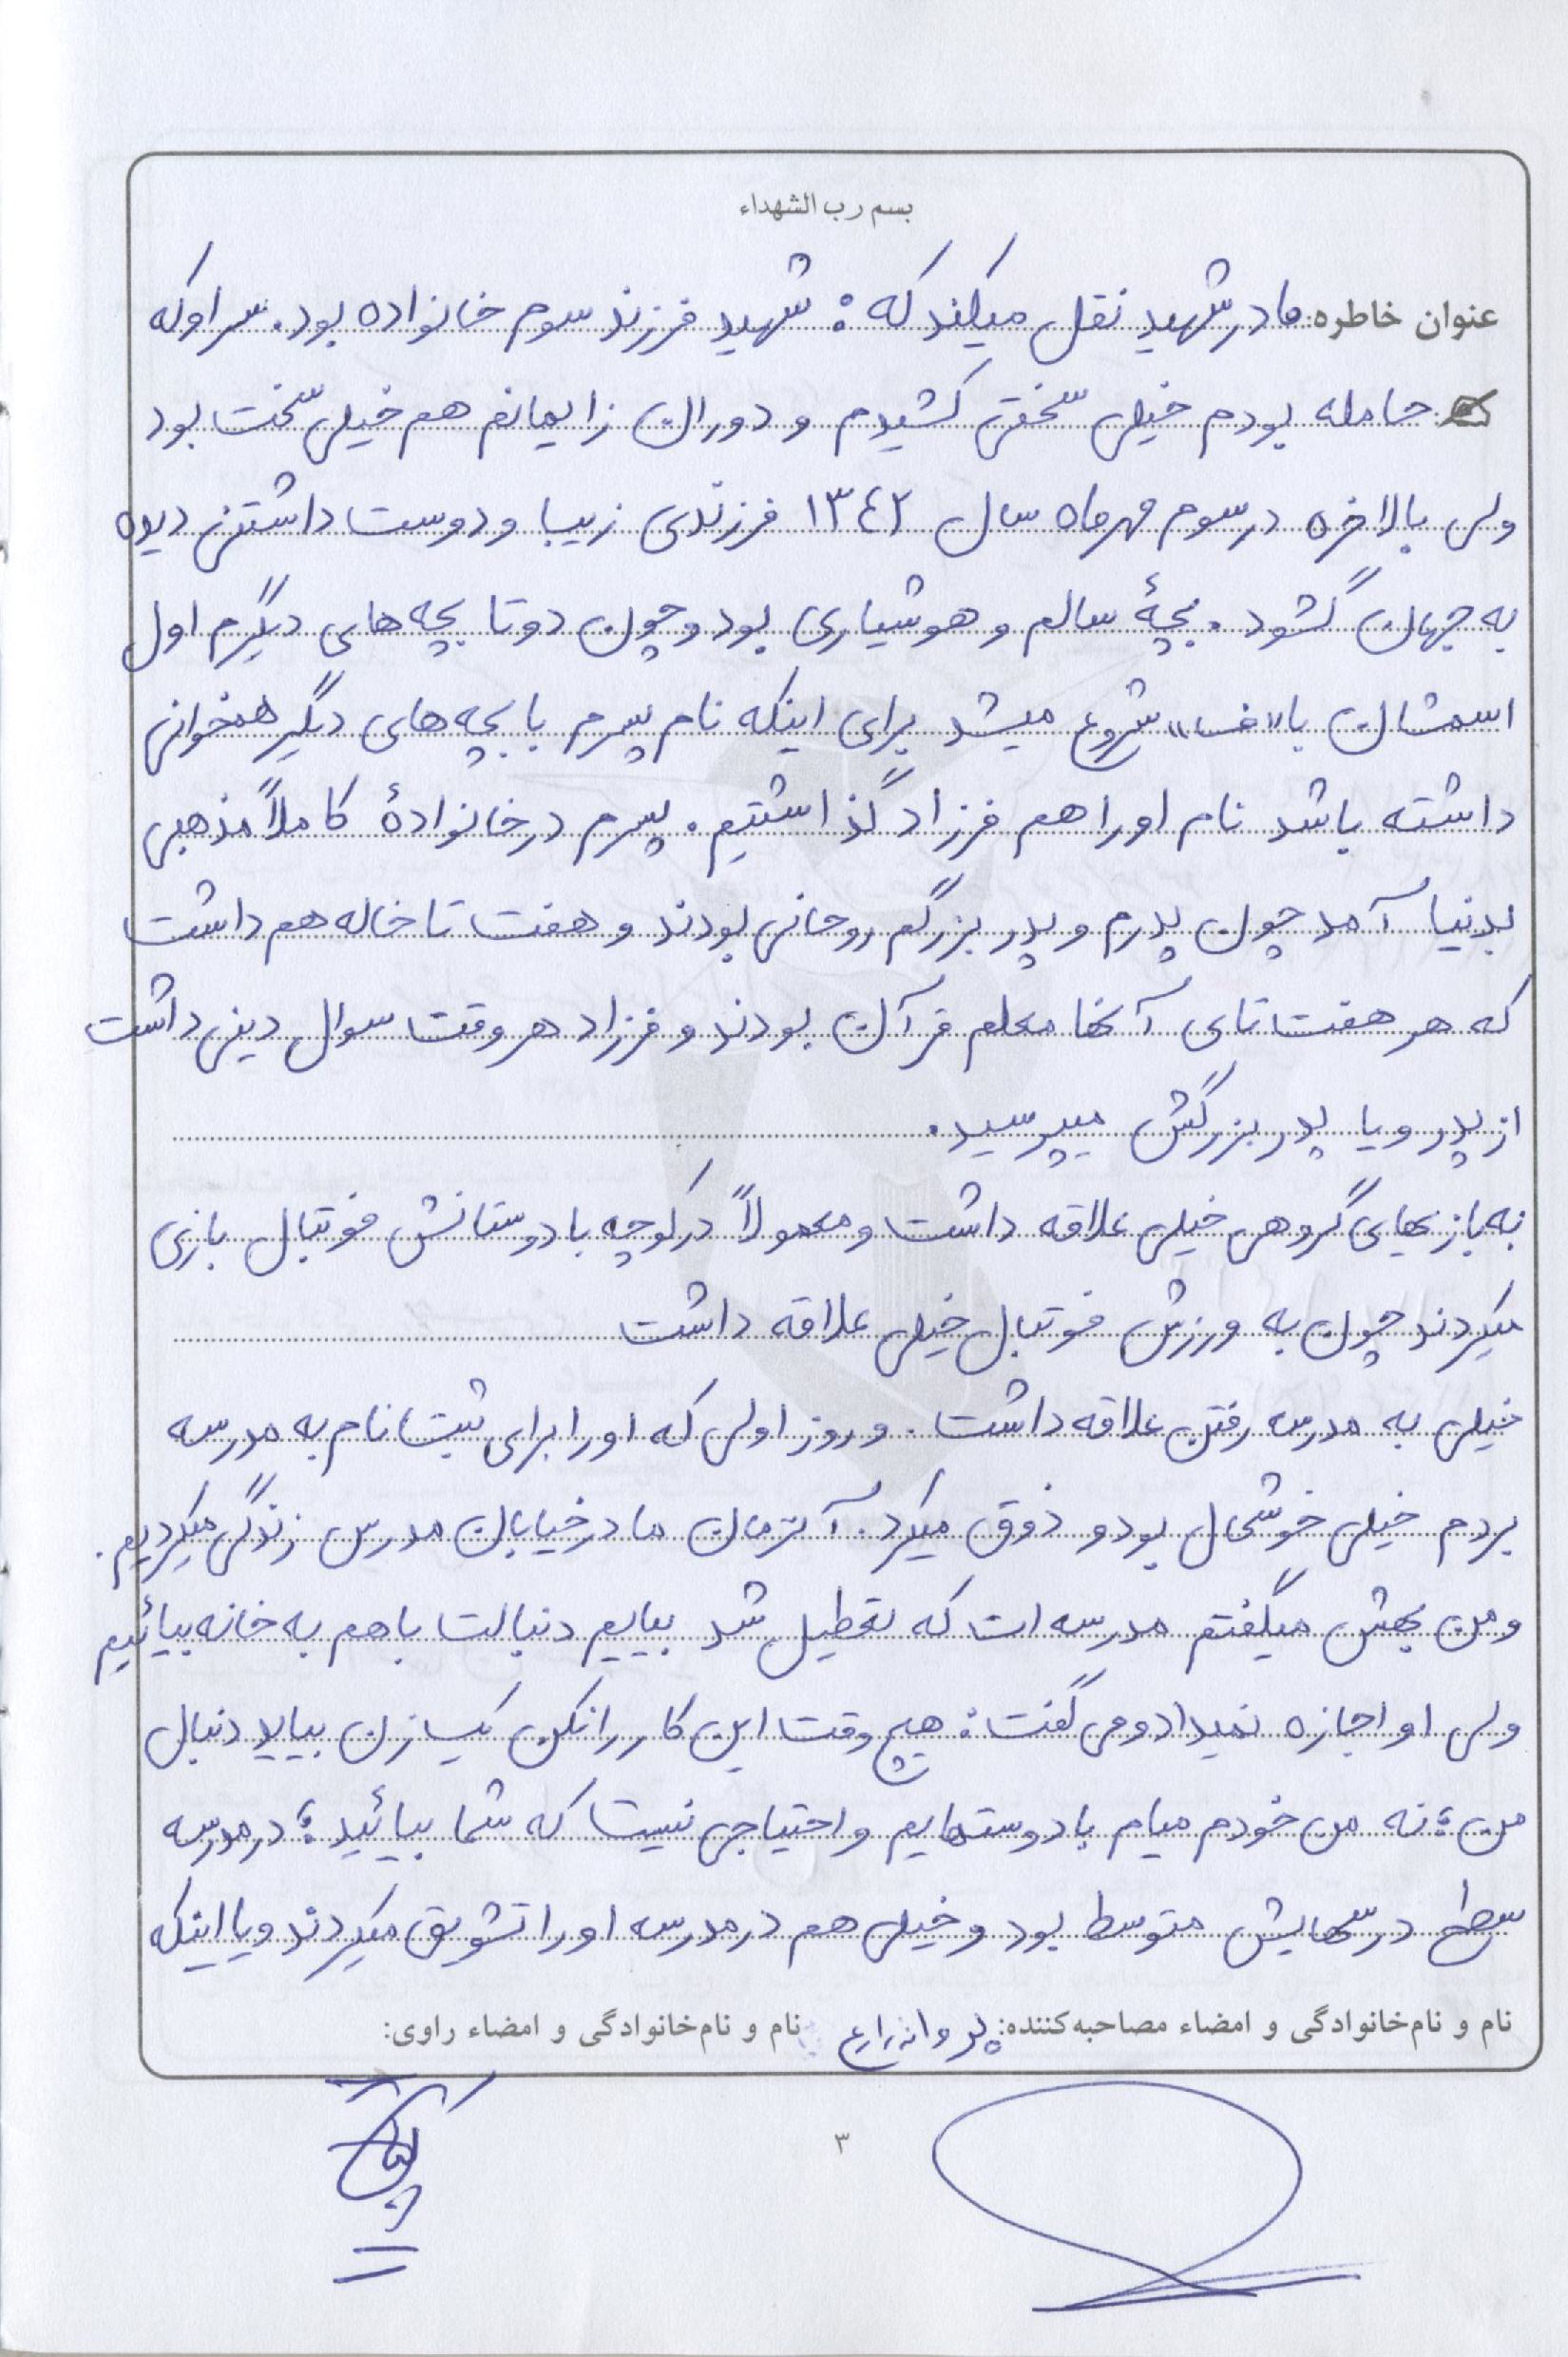 بسم رب الشهداء
عنوان خاطره: مادر شهید نقل میکند که : شهید فرزند سوم خانواده بود. سر او که
حامله بودم خیلی سختی کشیدم و دوران زایمانم هم خیلی سخت بود
ولی بالاخره در سوم مهرماه سال ۱۳٤۲ فرزندی زیبا و دوست داشتنی دیده
به جهان گشود . بچهٔ سالم و هوشیاری بود و چون دوتا بچه های دیگرم اول
اسمشان با «ف» شروع میشد برای اینکه نام پسرم با بچه های دیگر همخوانی
داشته باشد نام او را هم فرزاد گذاشتیم . پسرم در خانوادهٔ کاملاً مذهبی
بدنیا آمد چون پدرم و پدر بزرگم روحانی بودند و هفت تا خاله هم داشت
که هر هفت تای آنها معلم قرآن بودند و فرزاد هر وقت سوال دینی داشت
از پدر و یا پدر بزرگش میپرسید .
به بازیهای گروهی خیلی علاقه داشت و معمولاً در کوچه با دوستانش فوتبال بازی
میکردند چون به ورزش فوتبال خیلی علاقه داشت
خیلی به مدرسه رفتن علاقه داشت . و روز اولی که او را برای ثبت نام به مدرسه
بردم خیلی خوشحال بود و ذوق میکرد . آنزمان ما در خیابان مدرس زندگی میکردیم .
و من بهش میگفتم مدرسه ات که تعطیل شد بیایم دنبالت با هم به خانه بیائیم
ولی او اجازه نمیداد و می گفت : هیچ وقت این کار را نکن یک زن بیاید دنبال
من ؛ نه من خودم میام با دوستهایم و احتیاجی نیست که شما بیائید ؛ در مدرسه
سطح درسهایش متوسط بود و خیلی هم در مدرسه او را تشویق میکردند و یا اینکه
نام و نام‌خانوادگی و امضاء مصاحبه‌کننده: نام و نام‌خانوادگی و امضاء راوی:
۳